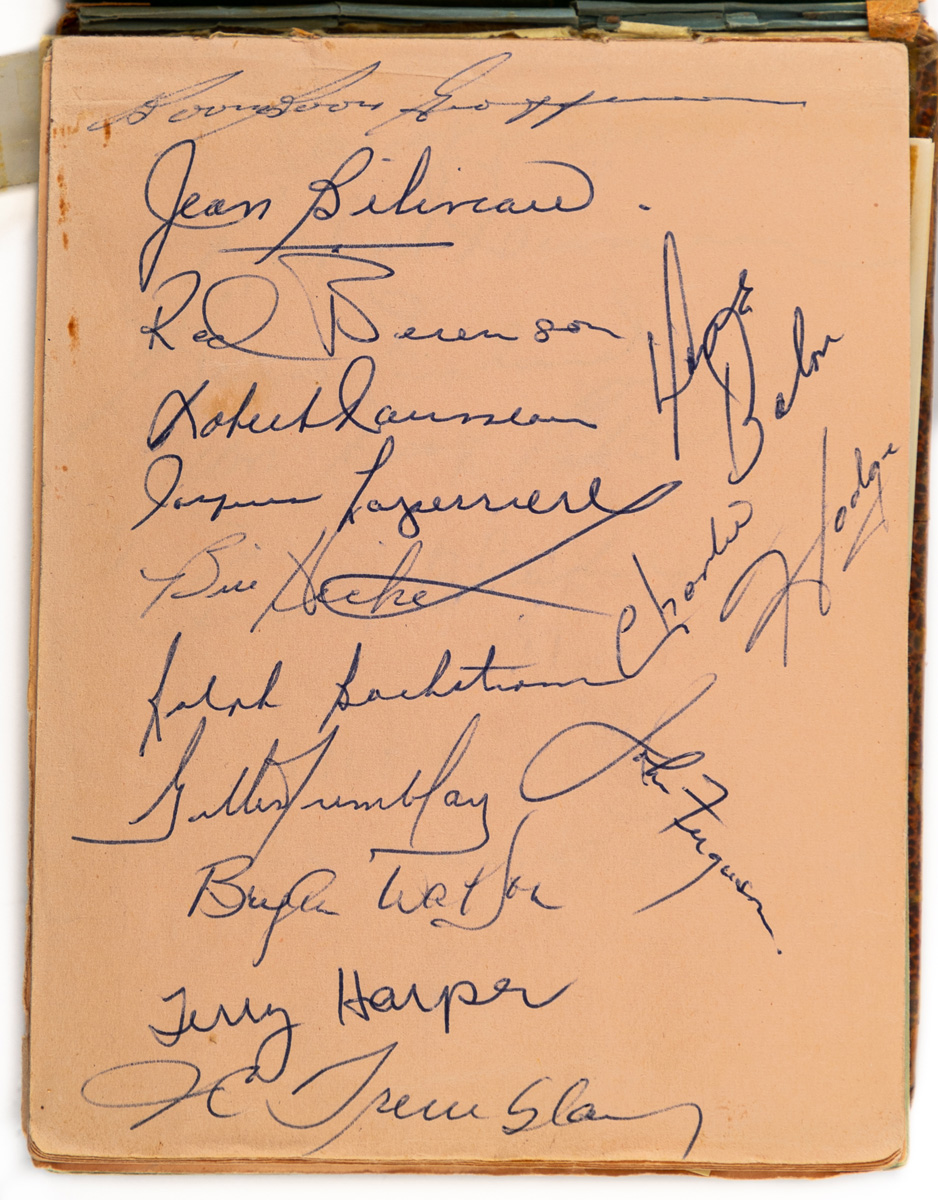 Boom Boom Geoffrion
Jean Béliveau.
Red Berenson
Robert Rousseau
Jacques Laperriere
Bill Hicke
Ralph Backstrom
Gilles Tremblay
Bryan Watson
Terry Harper
JC Tremblay
Dave Balon
Charlie Hodge
John Ferguson.